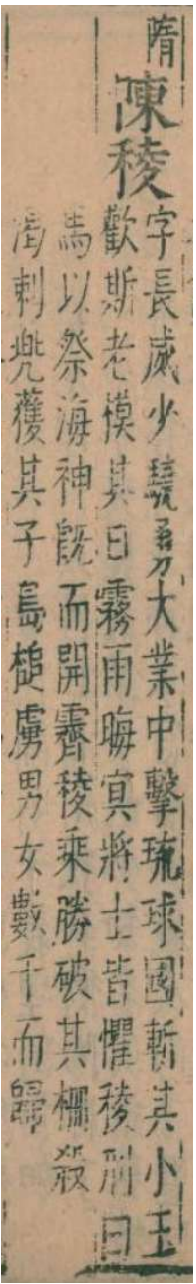 隋
陳稜
字長威少驍勇大業中擊琉球國斬其小王
歡斯老模其日霧雨晦冥將士皆懼稜刑白
馬以祭海神既而開霽稜乘勝破其柵殺
渴刺兜獲其子島槌虜男女數千而歸